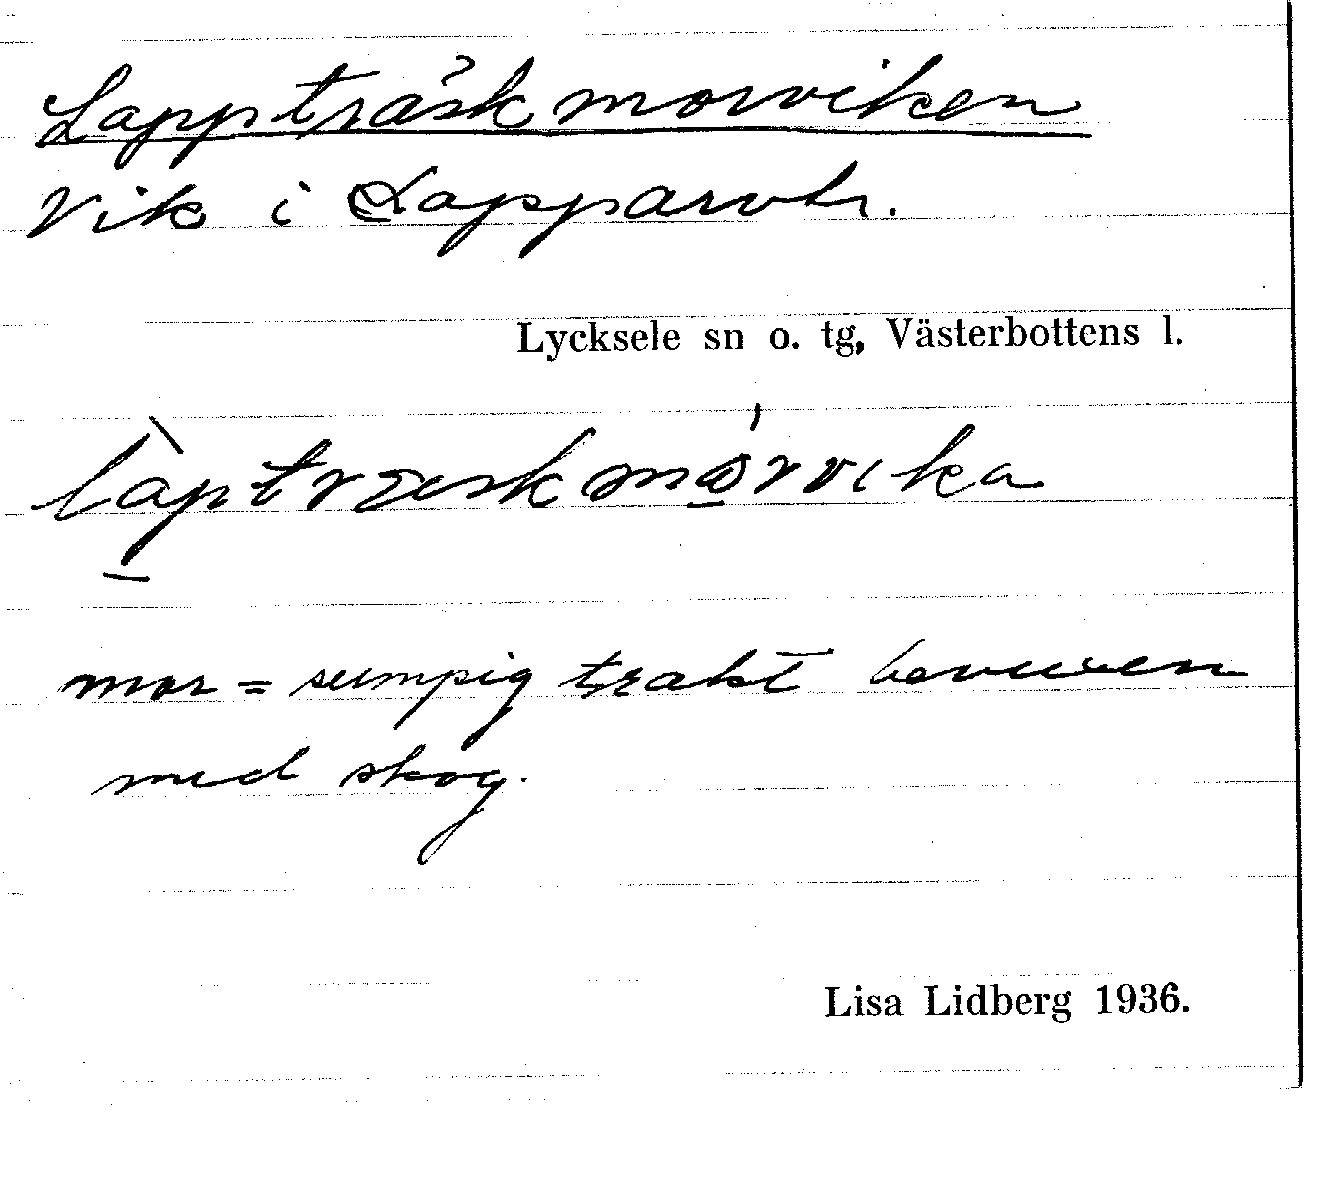 Lappträskmorviken
Vik i Lapparvtr.
Lycksele sn o. tg, Västerbottens l.
làptræskmórvika
mor = sumpig trakt bevuxen
med skog.
Lisa Lidberg 1936.